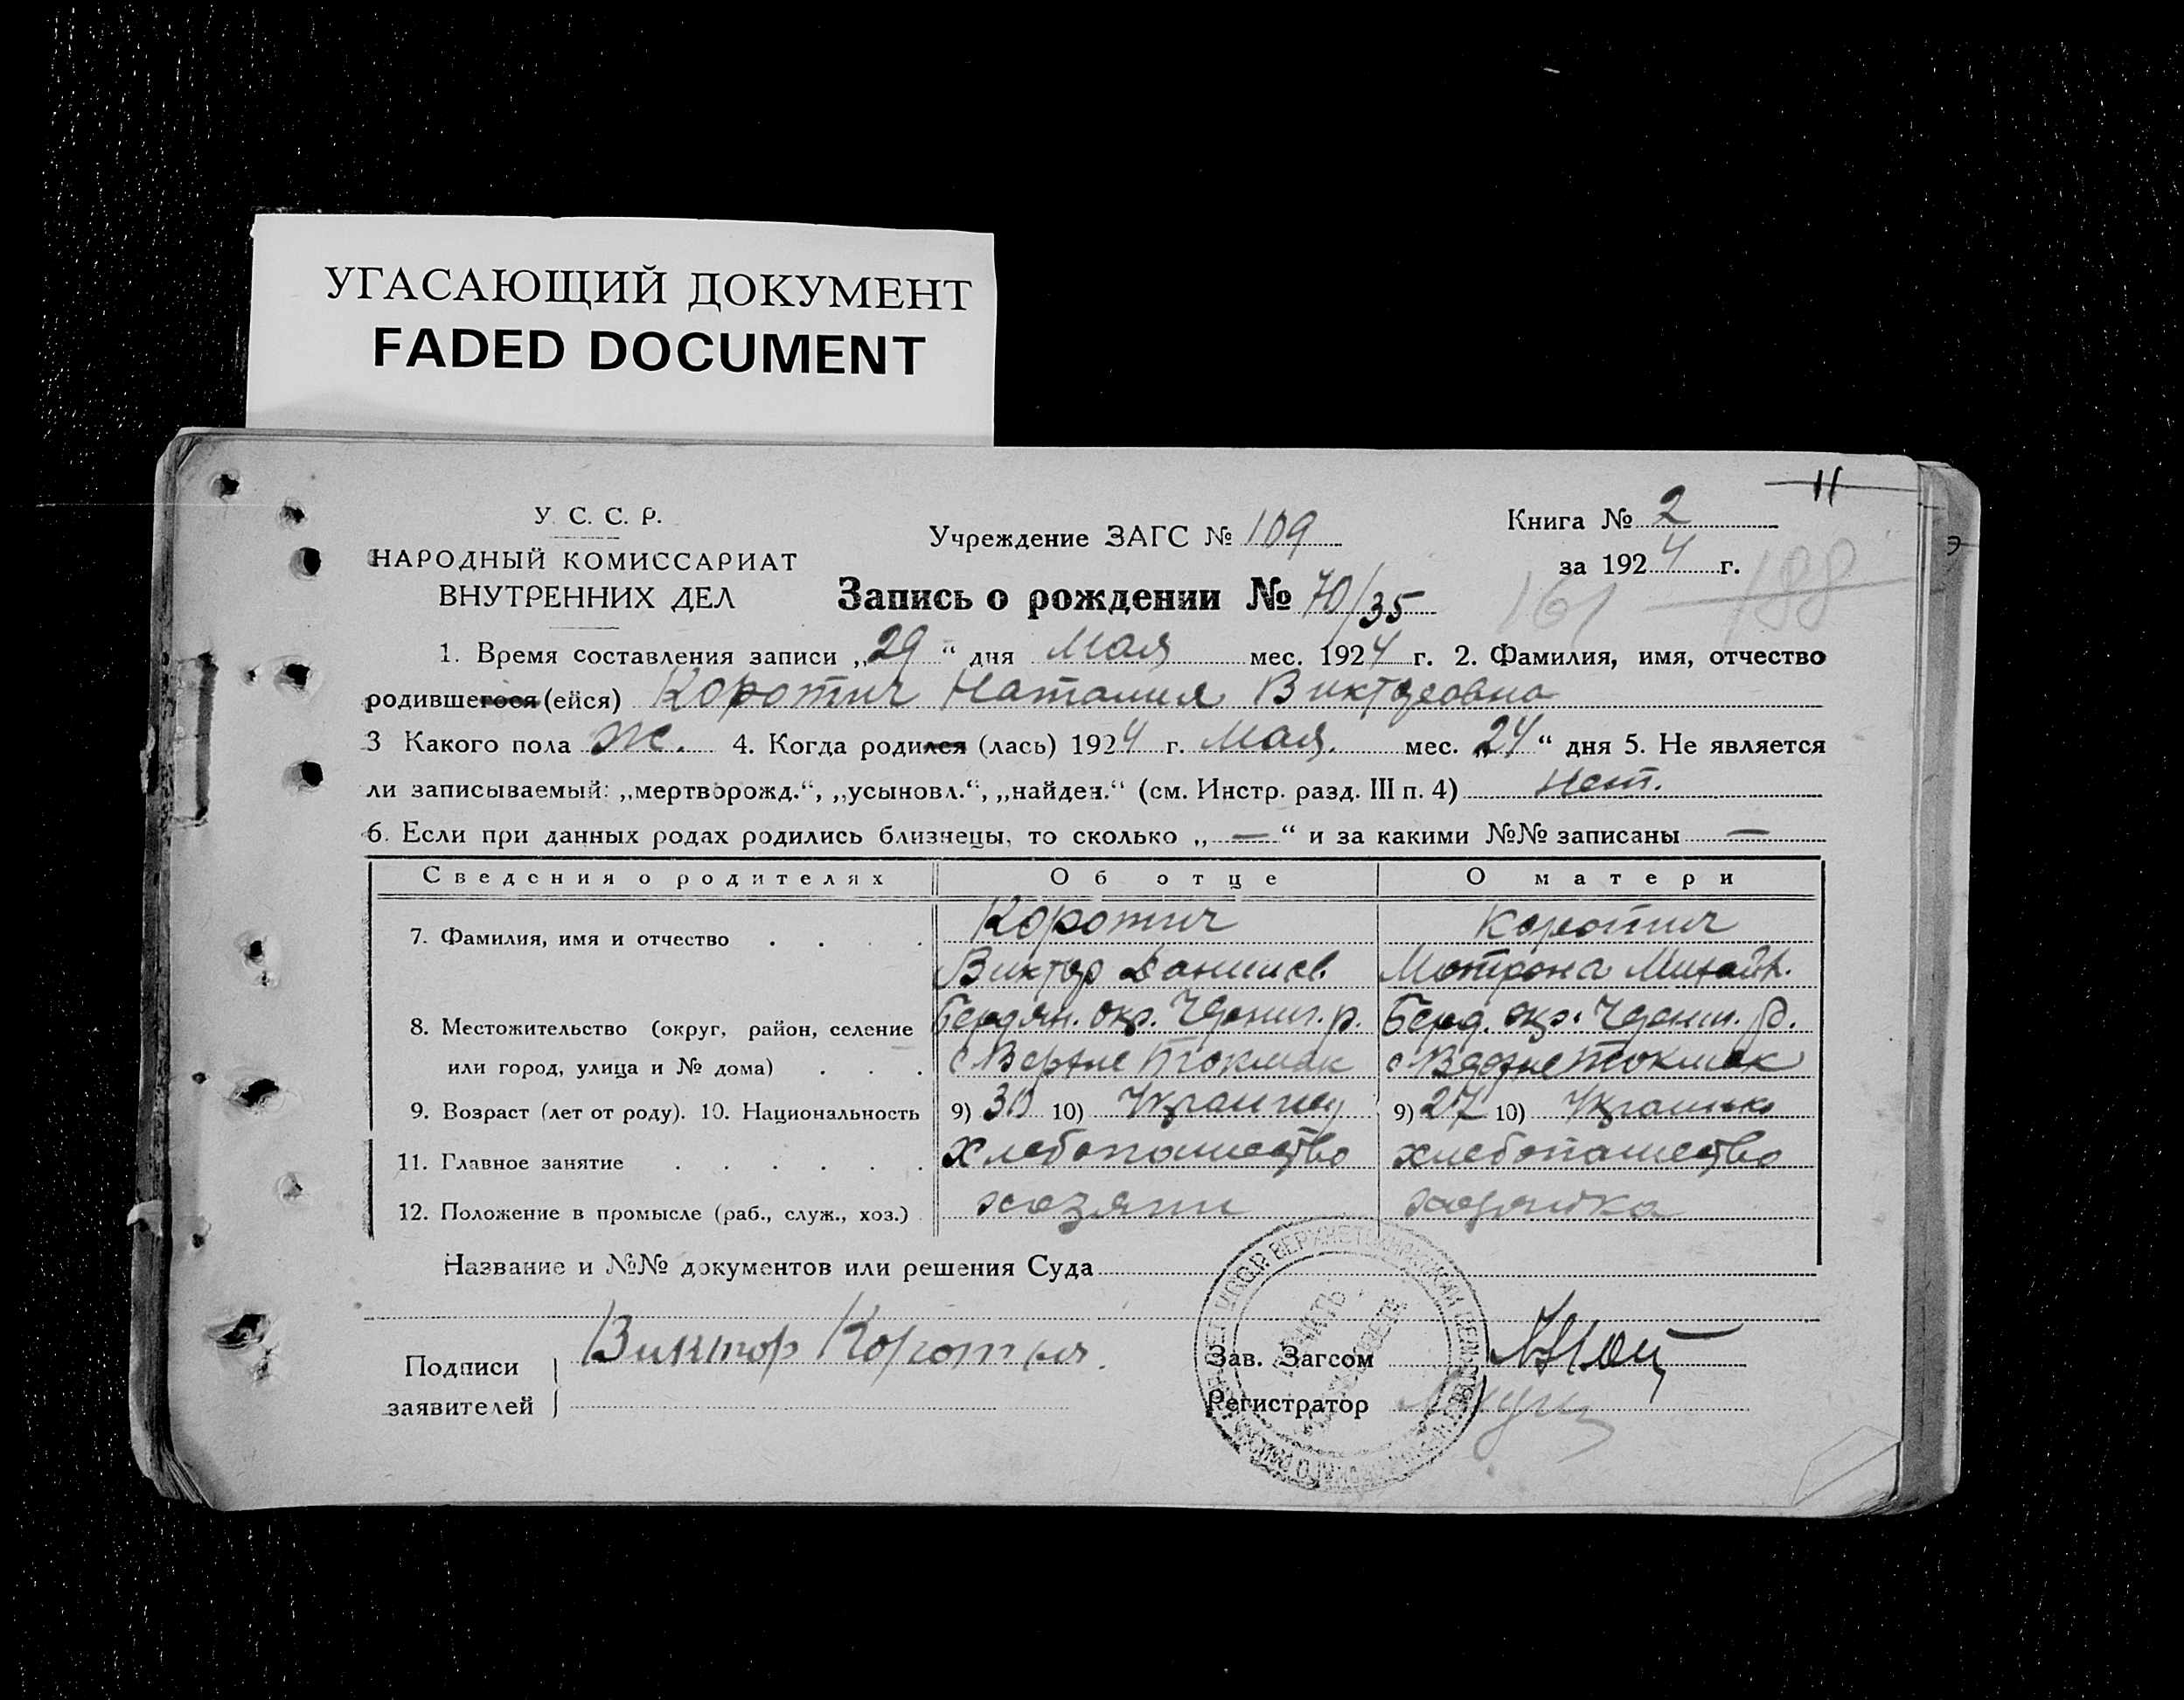 УГАСАЮЩИЙ ДОКУМЕНТ
FADED DOCUMENT
11
У. С. С. Р.
НАРОДНЫЙ КОМИССАРИАТ
ВНУТРЕННИХ ДЕЛ
Учреждение ЗАГС № 109
Книга № 2
за 1924 г.
161 188
Запись о рождении № 70/35
1. Время составления записи „29“ дня Мая мес. 1924 г. 2. Фамилия, имя, отчество
родившегося (ейся) Коротич Наталия Викторовна
3 Какого пола Ж. 4. Когда родился (лась) 1924 г. Мая. мес. „24“ дня 5. Не является
ли записываемый: „мертворожд.“, „усыновл.“, „найден.“ (см. Инстр. разд. III п. 4) Нет.
6. Если при данных родах родились близнецы, то сколько „—“ и за какими №№ записаны —
Сведения о родителях Об отце О матери
7. Фамилия, имя и отчество . . . . Коротич Коротич
Виктор Даниил. Мотрона Михайл.
8. Местожительство (округ, район, селение Бердян. окр. Черниг. р. Берд. окр. Черниг. р.
или город, улица и № дома) . . . с Верхне Токмак с Верхне Токмак
9. Возраст (лет от роду). 10. Национальность 9) 30 10) Украинец 9) 27 10) Украинка
11. Главное занятие . . . . . . Хлебопашество хлебопашество
12. Положение в промысле (раб., служ., хоз.) хозяин хозяйка
Название и №№ документов или решения Суда
Подписи
заявителей
Виктор Коротич.
Зав. Загсом
Регистратор